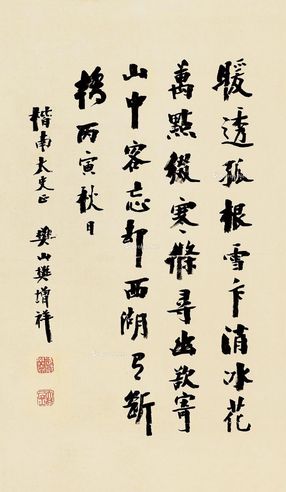 暖透孤根雪乍消冰花
萬點綴寒條尋幽欲寄
山中客忘却西湖有斷
橋丙寅秋日
楷南太史正 樊山樊增祥